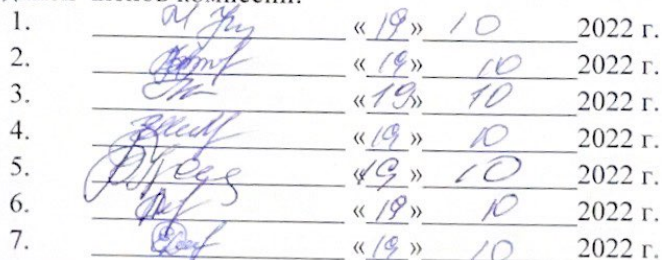 членов комиссии:
1. «19» 10 2022 г.
2. «19» 10 2022 г.
3. «19» 10 2022 г.
4. «19» 10 2022 г.
5. «19» 10 2022 г.
6. «19» 10 2022 г.
7. «19» 10 2022 г.